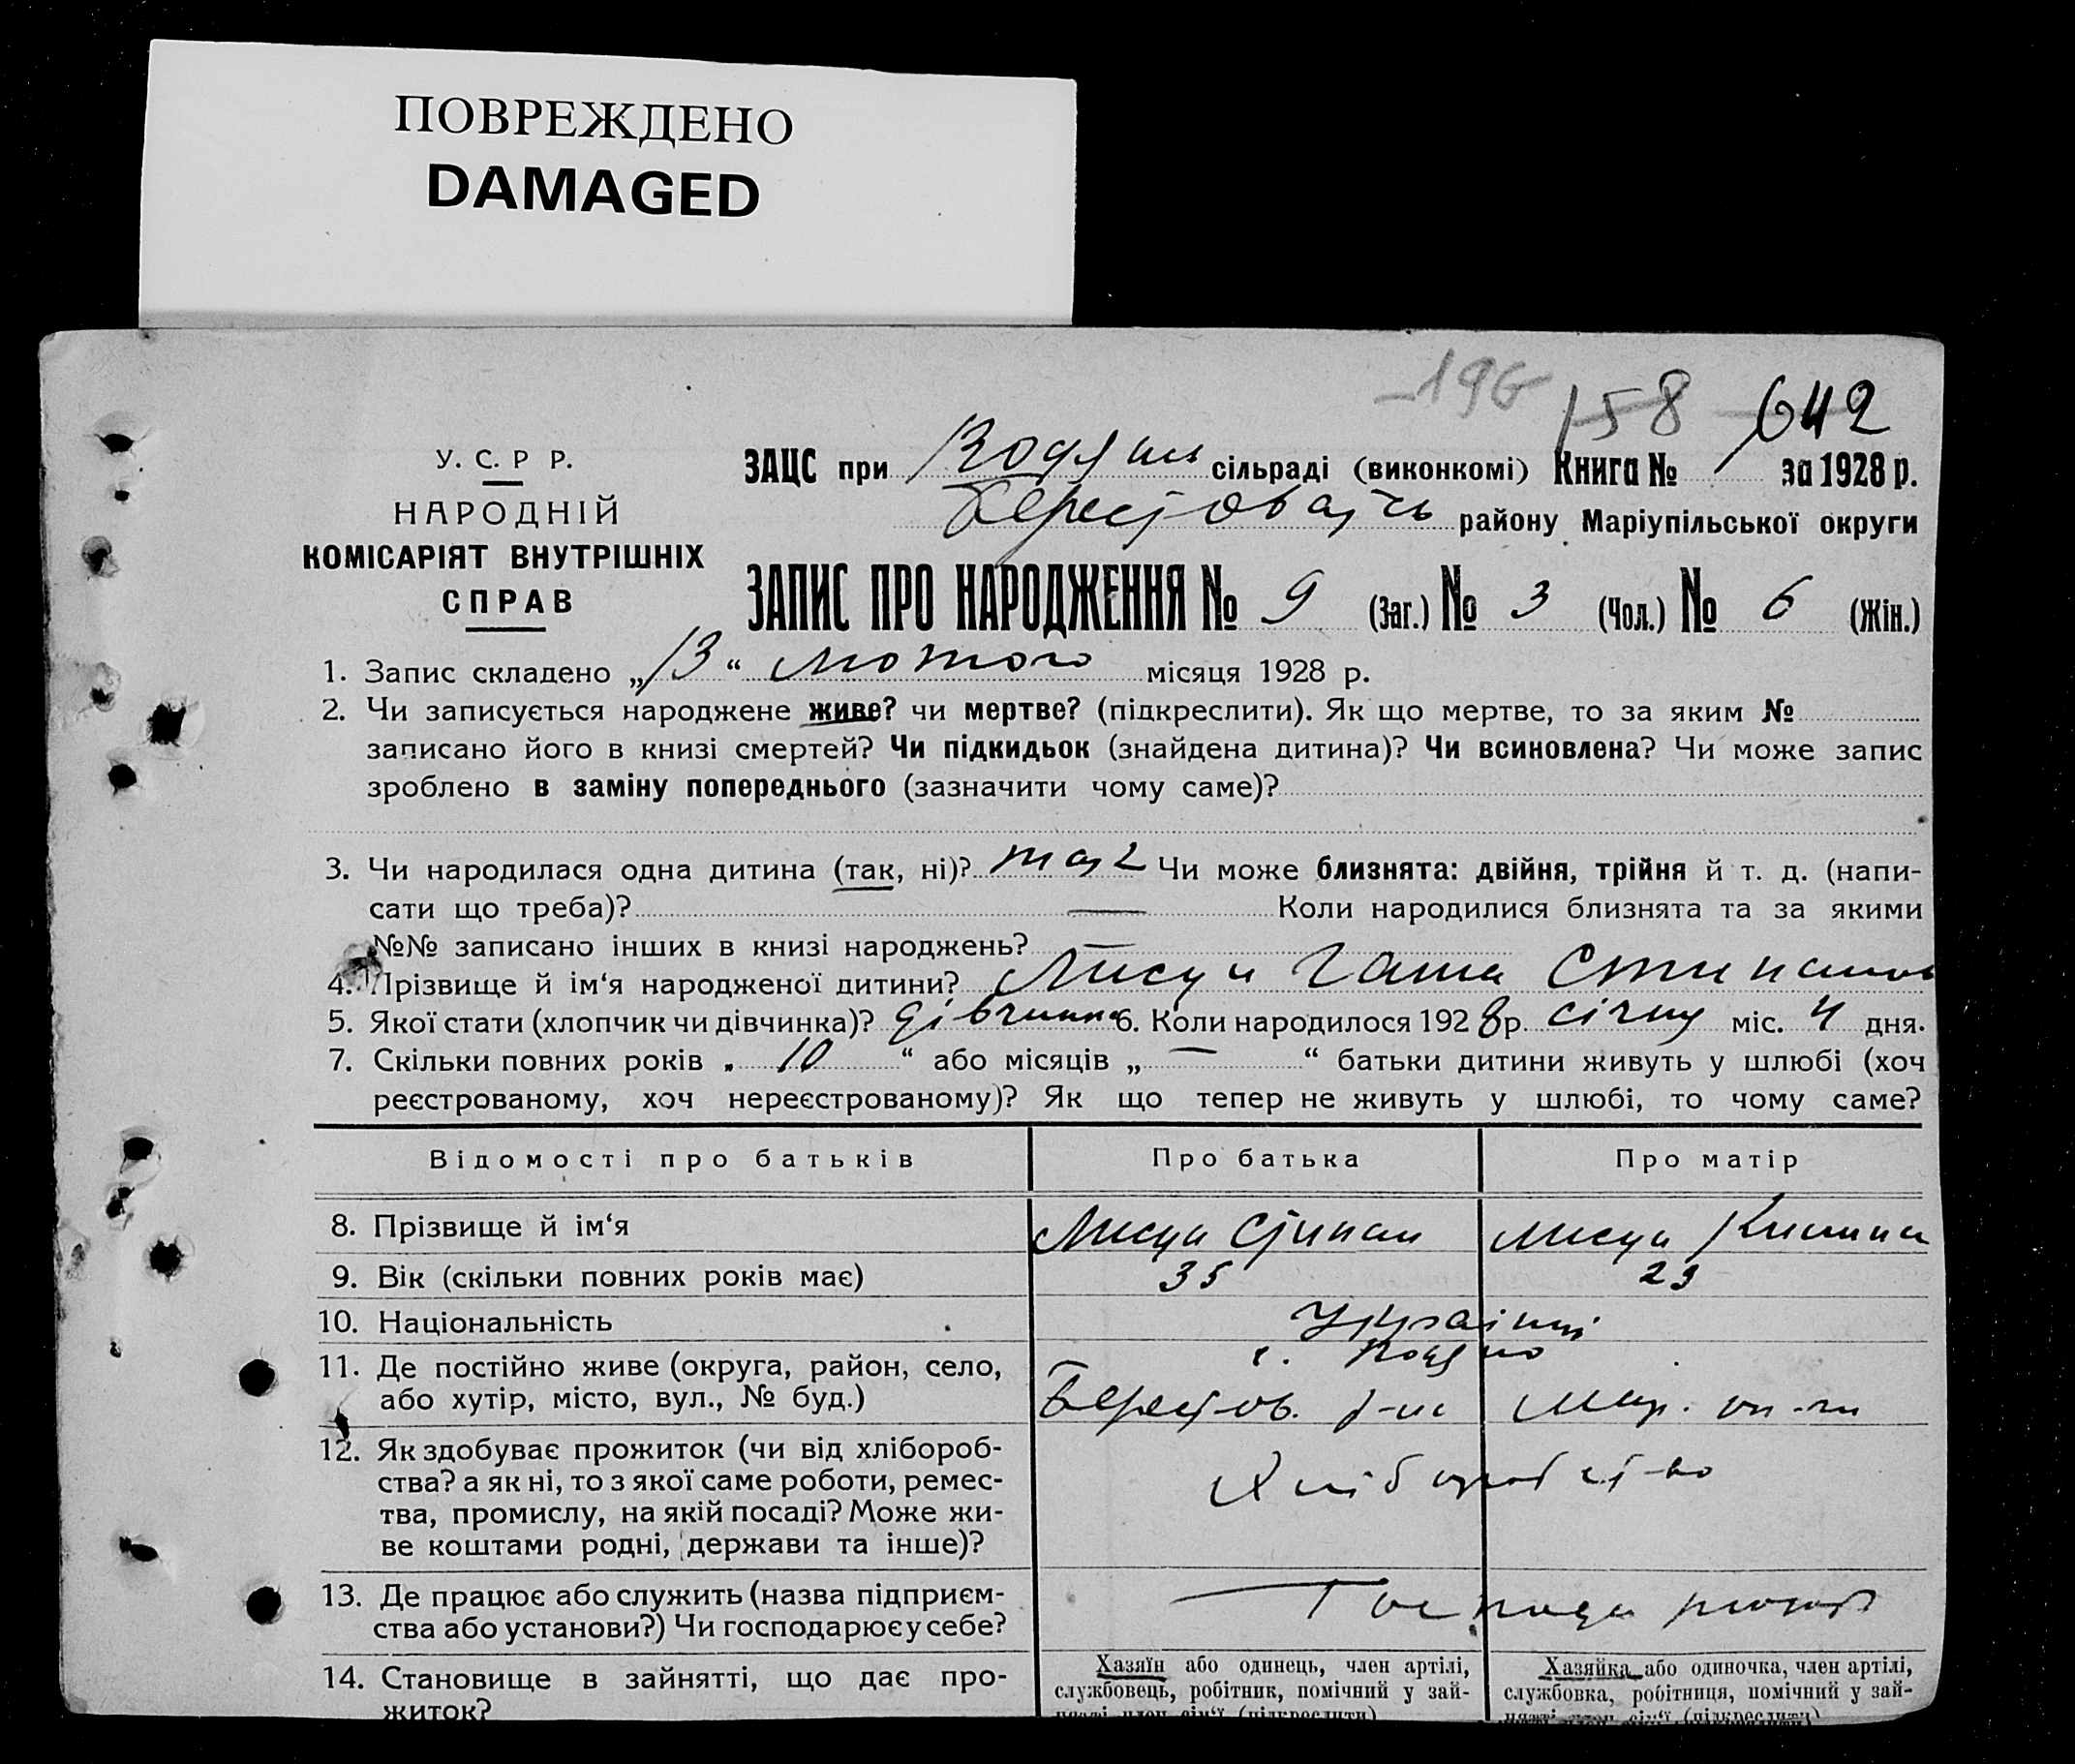 ПОВРЕЖДЕНО
DAMAGED
196 158 642
У. С. Р Р.
НАРОДНІЙ
КОМІСАРІЯТ ВНУТРІШНІХ
СПРАВ
ЗАЦС при сільраді (виконкомі) Книга № 1 за 1928 р.
району Маріупільської округи
ЗАПИС ПРО НАРОДЖЕННЯ № 9 (Заг.) № 3 (Чол.) № 6 (Жін.)
1. Запис складено „13“ лютого місяця 1928 р.
2. Чи записується народжене живе? чи мертве? (підкреслити). Як що мертве, то за яким №
записано його в книзі смертей? Чи підкидьок (знайдена дитина)? Чи всиновлена? Чи може запис
зроблено в заміну попереднього (зазначити чому саме)?
3. Чи народилася одна дитина (так, ні)? так Чи може близнята: двійня, трійня й т. д. (напи-
сати що треба)? — Коли народилися близнята та за якими
№№ записано інших в книзі народжень? —
4. Прізвище й ім‘я народженої дитини?
5. Якої стати (хлопчик чи дівчинка)? дівчинка 6. Коли народилося 1928 р. січня міс. 4 дня.
7. Скільки повних років „ 10 “ або місяців „ — “ батьки дитини живуть у шлюбі (хоч
реєстрованому, хоч нереєстрованому)? Як що тепер не живуть у шлюбі, то чому саме?
Відомості про батьків Про батька Про матір
8. Прізвище й ім‘я
9. Вік (скільки повних років має) 35 29
10. Національність Українці
11. Де постійно живе (округа, район, село,
або хутір, місто, вул., № буд.) Берестов. р-н
12. Як здобуває прожиток (чи від хлібороб-
ства? а як ні, то з якої саме роботи, ремес-
тва, промислу, на якій посаді? Може жи-
ве коштами родні, держави та інше)? Хліборобст-во
13. Де працює або служить (назва підприєм-
ства або установи?) Чи господарює у себе?
14. Становище в зайнятті, що дає про-
житок?
Хазяїн або одинець, член артілі,
службовець, робітник, помічний у зай-
нятті член сім‘ї (підкреслити)
Хазяйка або одиночка, член артілі,
службовка, робітниця, помічний у зай-
нятті член сім‘ї (підкреслити)